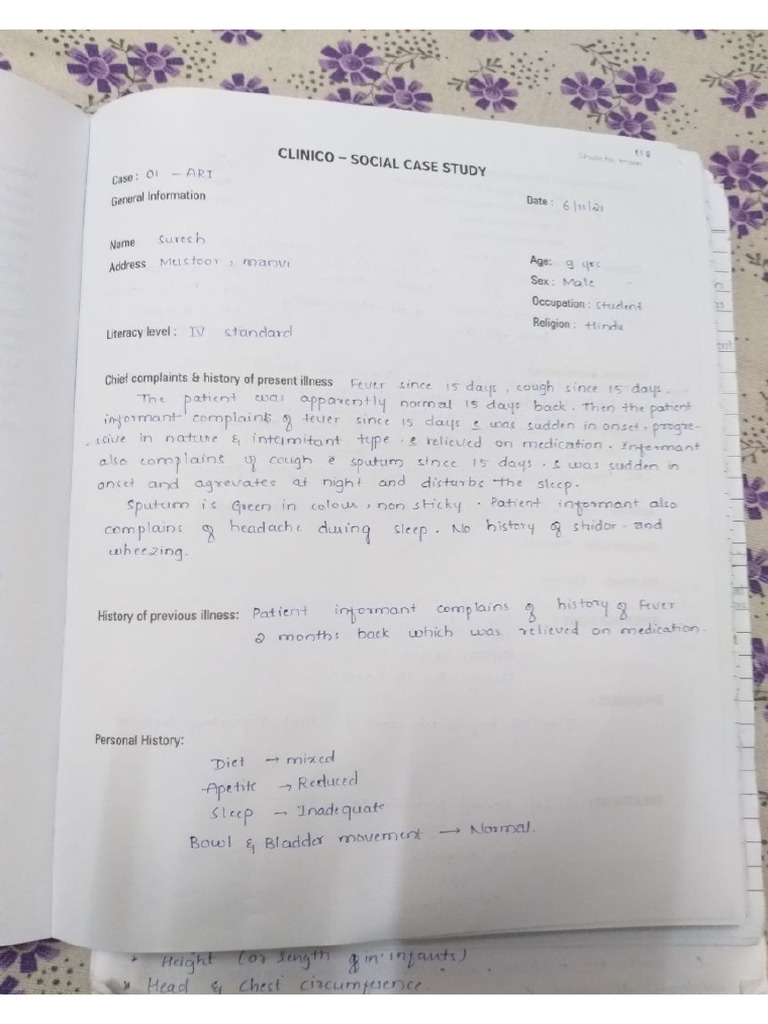 CLINICO – SOCIAL CASE STUDY
Case: 01 – ARI
General Information
Date: 6/11/21
Name Suresh
Address Mustoor, manvi
Age: 9 yrs
Sex: Male
Occupation: Student
Religion: Hindu
Literacy level: IV standard
Chief complaints & history of present illness Fever since 15 days, cough since 15 days.
The patient was apparently normal 15 days back. Then the patient
informant complaints of fever since 15 days & was sudden in onset, progre-
ssive in nature & intermitant type & relieved on medication. Informant
also complains of cough c̄ sputum since 15 days. & was sudden in
onset and agrevates at night and disturbs the sleep.
Sputum is Green in colour, non sticky. Patient informant also
complains of headache during sleep. No history of stridor and
wheezing.
History of previous illness: Patient informant complains of history of Fever
2 months back which was relieved on medication.
Personal History:
Diet → mixed
Apetite → Reduced
Sleep → Inadequate
Bowl & Bladder movement → Normal.
Height (or length in infants)
Head & Chest circumference